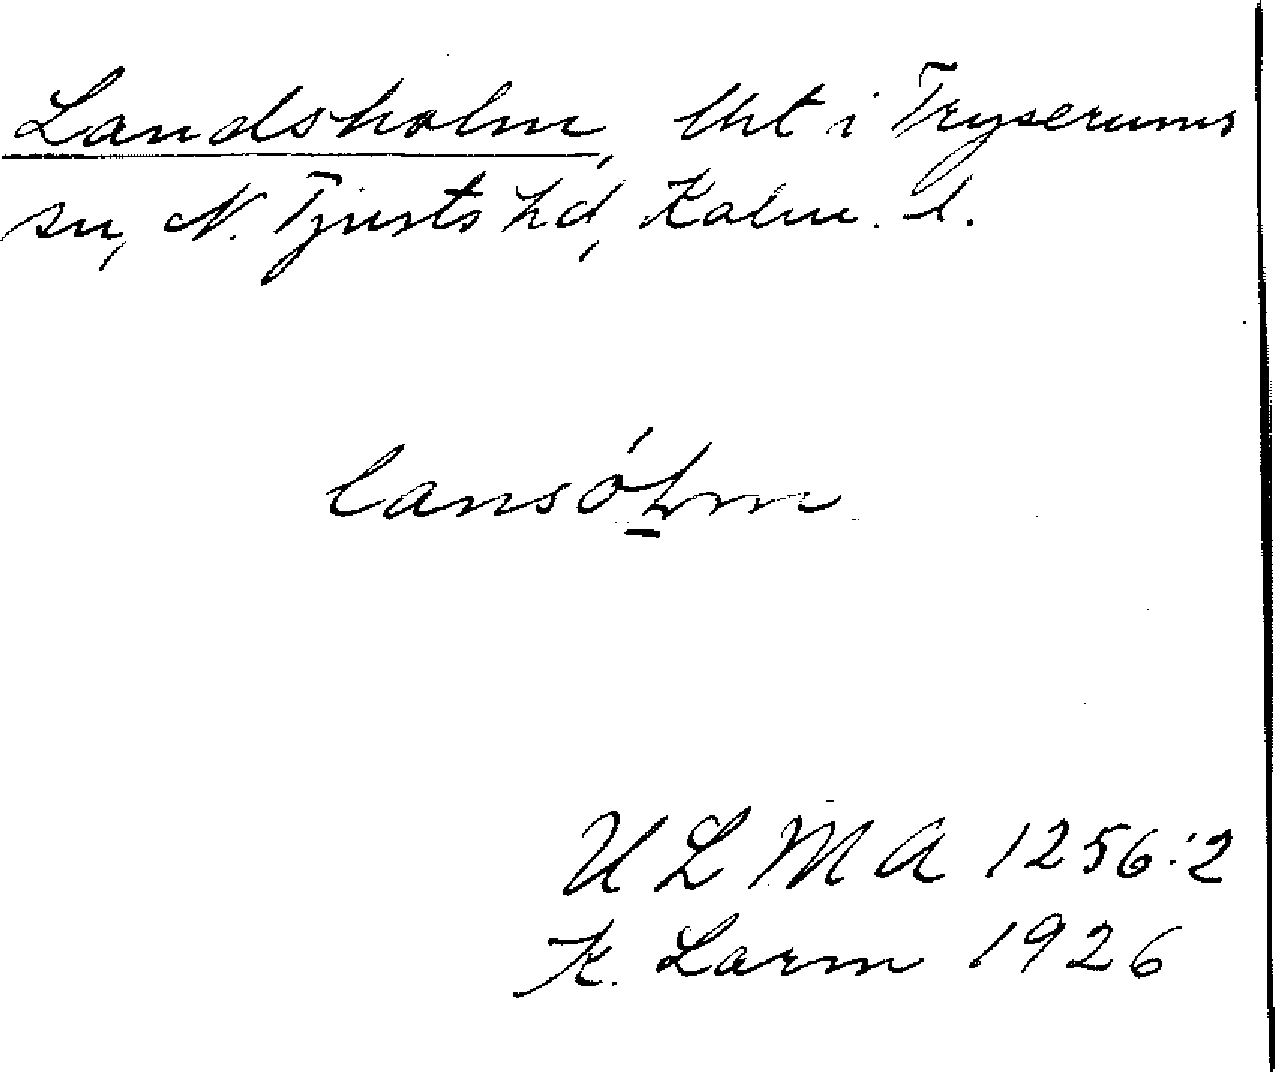 Landsholm, lht i Tryserums
sn, N. Tjusts hd, Kalm. l.
lansólm
U L M A 1256:2
K. Larm 1926